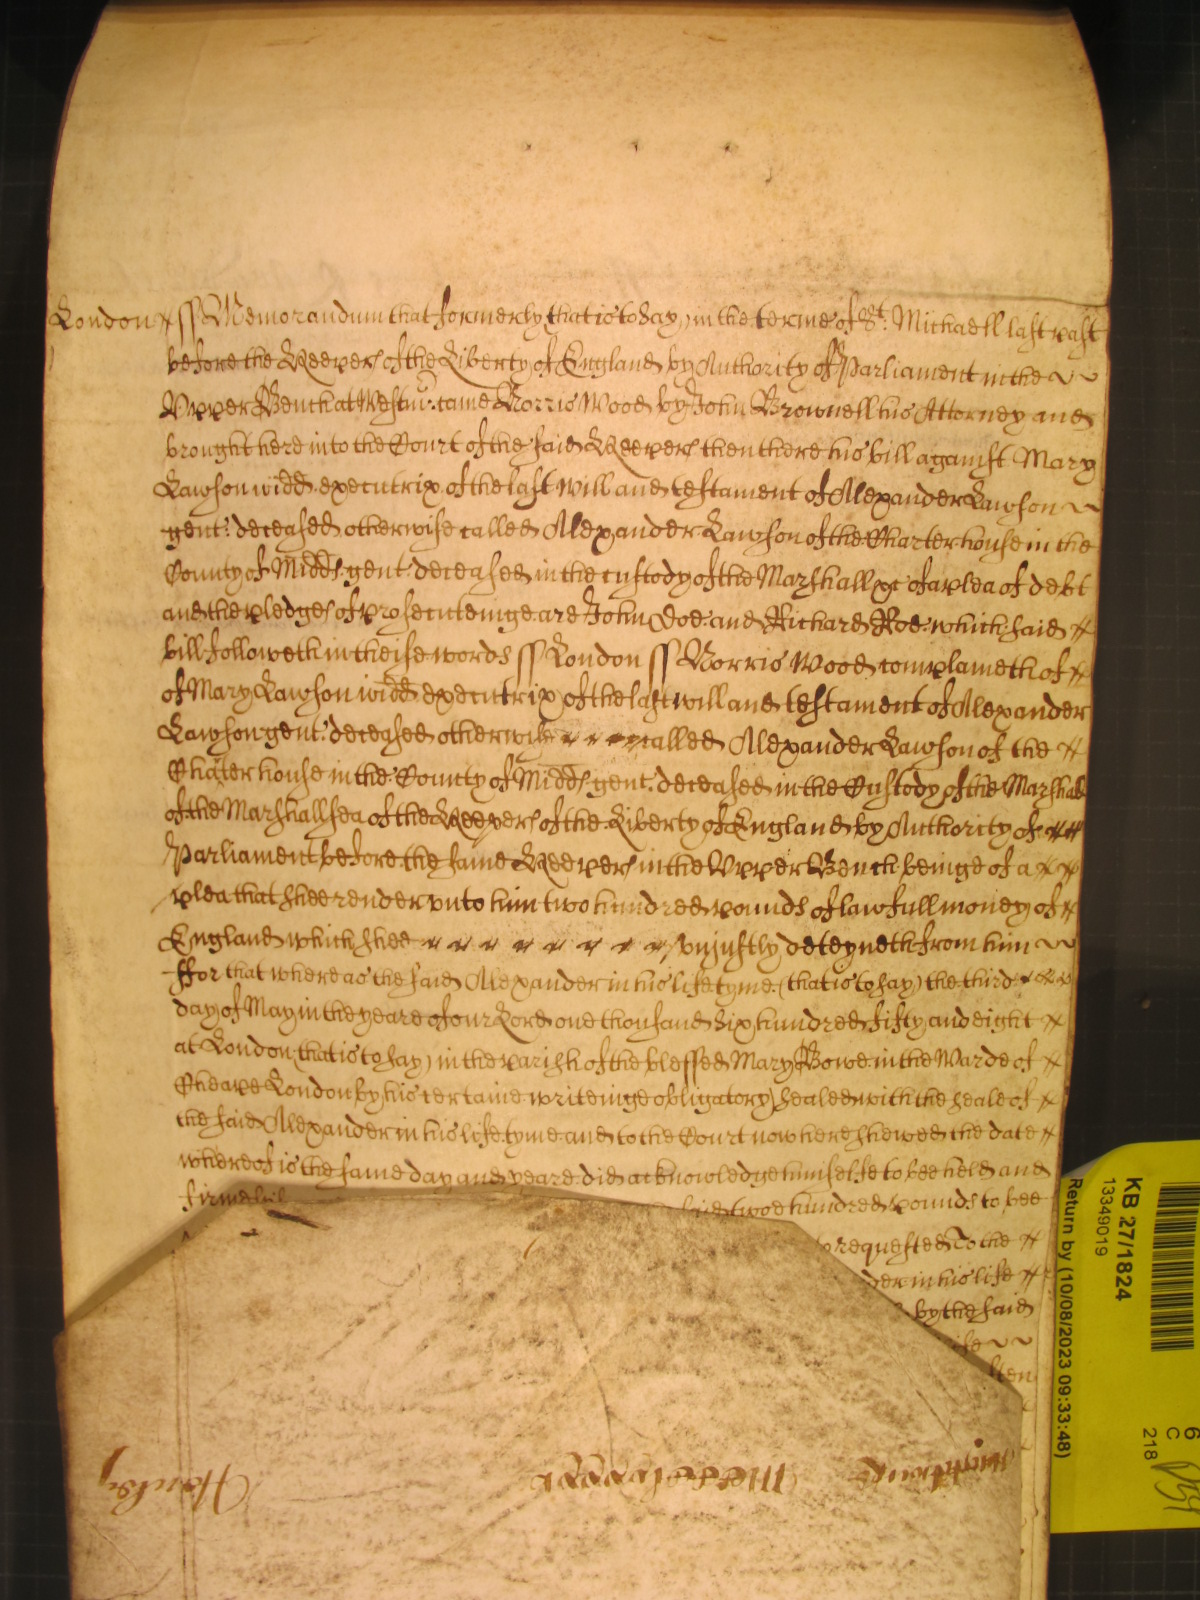 London ss Memorandum that formerly that is to say in the terme of St. Michaell last past
before the Keepers of the Liberty of England by Authority of Parliament in the
Upper Bench at Westmr. came Norris Wood by John Brownell his Attorney and
brought here into the Court of the said Keepers then there his bill against Mary
Lawson widd. executrix of the last will and testament of Alexander Lawson
gent: deceased otherwise called Alexander Lawson of the Charterhouse in the
County of Midds. gent. deceased in the custody of the Marshall &c of a plea of debt
and the pledges of prosecuteinge are John Doe and Richard Roe which said
bill followeth in theise words ss London ss Norris Wood complaineth of
of Mary Lawson widd executrix of the last will and testament of Alexander
Lawson gent: deceased otherwise called Alexander Lawson of the
Charterhouse in the County of Midds. gent. deceased in the Custody of the Marshall
of the Marshallsea of the Keepers of the Liberty of England by Authority of
Parliament before the same Keepers in the Upper Bench beinge of a
plea that shee render unto him two hundred pounds of lawfull money of
England which shee unjustly deteyneth from him
ffor that whereas the said Alexander in his life tyme (that is to say) the third
day of May in the yeare of our Lord one thousand six hundred fifty and eight
at London (that is to say) in the parish of the blessed Mary Bowe in the Warde of
Cheape London by his certaine writeinge obligatory sealed with the seale of
the said Alexander in his life tyme and to the Court now here shewed the date
whereof is the same day and yeare did acknowledge himselfe to bee held and
firmely said twoe hundred pounds to bee
requested To the
in his life
by the said
KB 27/1824
13349019
Return by (10/08/2023 09:33:48)
6
C
218